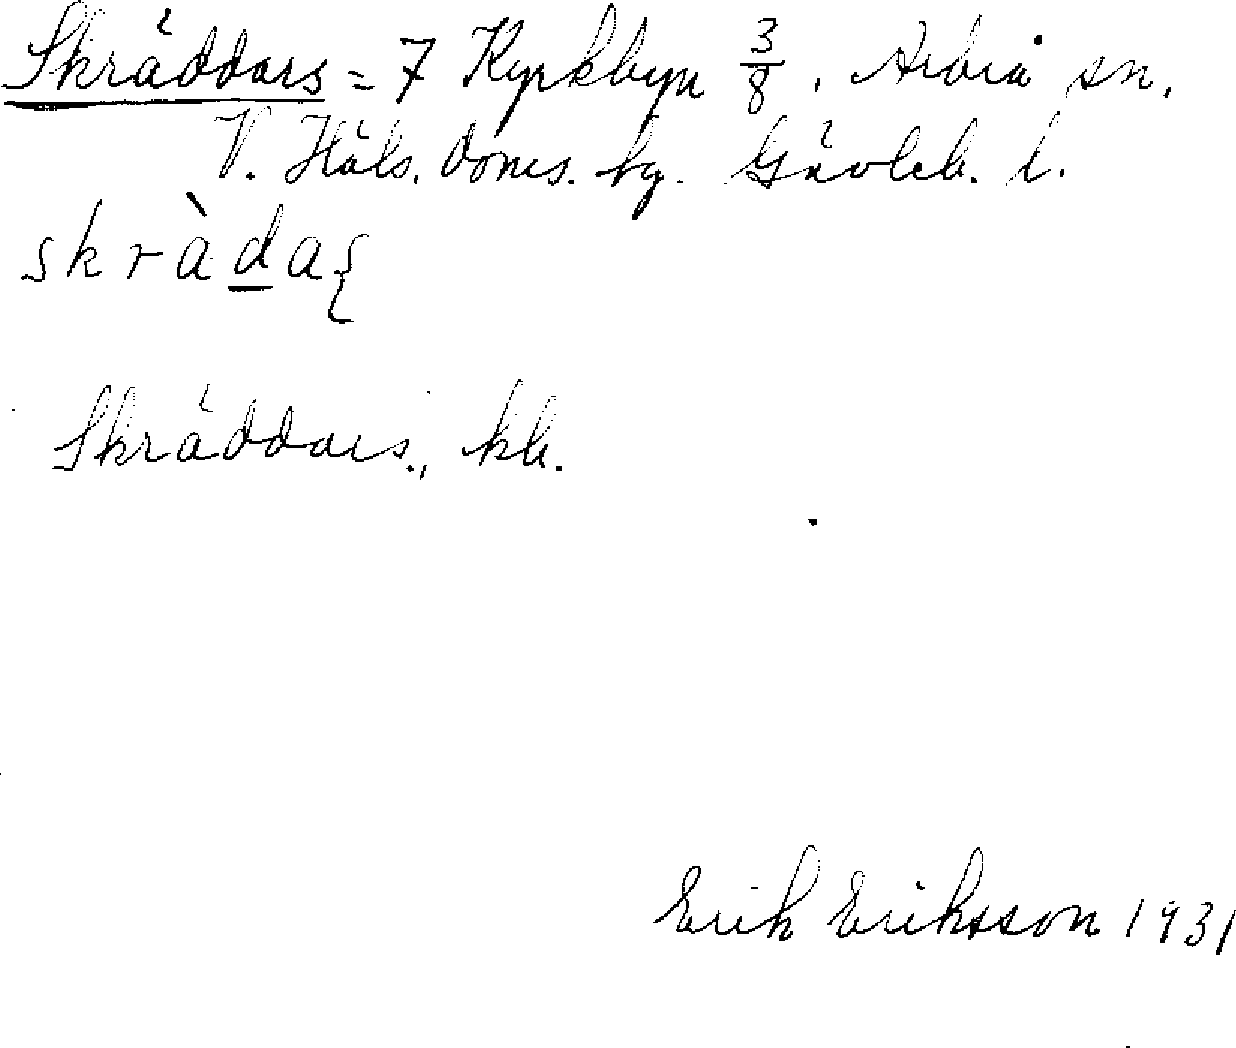 Skräddars = 7 Kyrkbyn 3/8. Arbrå sn.
V. Häls. doms. hg. Gävleb. l.
skràdaʂ
Skräddars., kb.
Erik Eriksson 1931